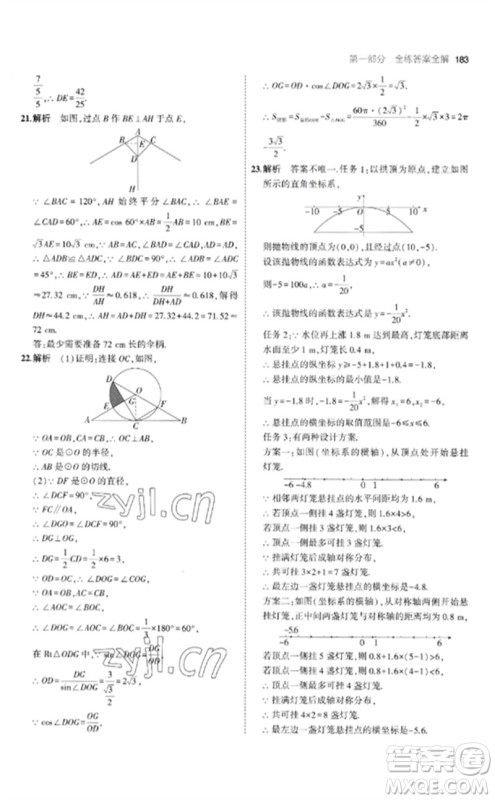 第一部分 全练答案全解 183
7/5
5, ∴ DE=42/25.
21.解析 如图,过点 B 作 BE⊥AH 于点 E,
A
B E C
D
H
∵ ∠BAC = 120°, AH 始终平分 ∠BAC, ∴ ∠BAE=
∠CAD=60°,∴ AE=AB·cos 60°=1/2 AB=10 cm,∴ BE=
√3 AE=10√3 cm.∵ AB=BD,AC=CD,AD=AD,
∴ △ADB≌△ADC,
∴ BE=ED,∴ AD=AE+ED=AE+BE=10+10√3
≈27.32 cm,∵ DH/AH≈0.618,∴ DH/(DH+AD)=0.618,解得
DH≈44.2 cm,∴ AH=AD+DH≈27.32+44.2=71.52≈
72 cm.
答:最少需要准备 72 cm 长的伞柄.
22.解析 (1)证明:连接 OC,如图,
D
O
G F
A C B
∵ OA=OB,CA=CB,
∴ OC⊥AB.
∵ OC 是⊙O 的半径,
∴ AB 是⊙O 的切线.
(2)∵ DF 是⊙O 的直径,
∴ ∠DCF=90°.
∵ FC∥OA,
∴ ∠DGO=∠DCF=90°,
∴ DG⊥OA,
∴ DG=1/2 CD=1/2×6=3,
∵ OD=OC,∴ ∠DOG=∠COG,
∵ OA=OB,AC=CB,∴ ∠COG=∠BOC,
∴ ∠DOG=∠COG=∠BOC=1/3×180°=60°,
在 Rt△ODG 中,∵ sin∠DOG=DG/OD,
∴ OD=DG/sin∠DOG=3/(√3/2)=2√3,
∵ cos∠DOG=OG/OD,
∴ OG=OD·cos∠DOG=2√3×1/2=√3,
∴ S阴影=S扇形-S=60π·(2√3)²/360-1/2×3×√3=2π
-3√3/2.
23.解析 答案不唯一.任务 1:以拱顶为原点,建立如图
所示的直角坐标系,
y
-10 -5 O 5 10 x
-5
则抛物线的顶点为(0,0),且过点(10,-5).
设该抛物线的函数表达式为 y=ax²(a≠0),
则-5=100a,∴ a=-1/20,
∴ 该抛物线的函数表达式是 y=-1/20 x².
任务 2:∵ 水位再上涨 1.8 m 达到最高,灯笼底部距离
水面不小于 1 m,灯笼长 0.4 m,
∴ 悬挂点的纵坐标 y≥-5+1.8+1+0.4=-1.8,
∴ 悬挂点的纵坐标的最小值是-1.8.
当 y=-1.8 时,-1.8=-1/20 x²,∴ x=±6,
∴ 悬挂点的横坐标的取值范围是-6≤x≤6.
任务 3:有两种设计方案.
方案一:如图(坐标系的横轴),从顶点处开始悬挂灯
笼.
-6 -4.8 0 1.6 6
∵ 相邻两灯笼悬挂点的水平间距均为 1.6 m,
∴ 若顶点一侧挂 4 盏灯笼,则 1.6×4>6,
若顶点一侧挂 3 盏灯笼,则 1.6×3<6,
∴ 顶点一侧最多可挂 3 盏灯笼.
∵ 挂满灯笼后成轴对称分布,
∴ 共可挂 3×2+1=7 盏灯笼,
∴ 最左边一盏灯笼悬挂点的横坐标是-4.8.
方案二:如图(坐标系的横轴),从对称轴两侧开始悬
挂灯笼,正中间两盏与对称轴的距离均为 0.8 m,
-5.6
-6 0 1 6
若顶点一侧挂 5 盏灯笼,则 0.8+1.6×(5-1)>6,
若顶点一侧挂 4 盏灯笼,则 0.8+1.6×(4-1)<6,
∴ 顶点一侧最多可挂 4 盏灯笼.
∵ 挂满灯笼后成轴对称分布,
∴ 共可挂 4×2=8 盏灯笼,
∴ 最左边一盏灯笼悬挂点的横坐标是-5.6.
zyjl.cn
zyjl.cn
作业精灵